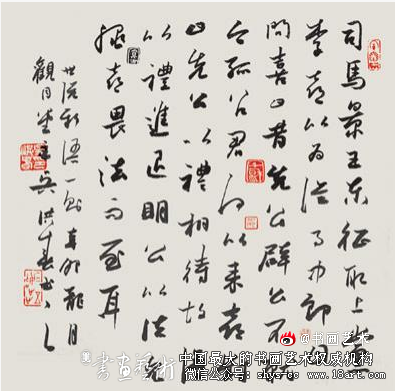 司馬景王東征取上黨
李喜以為從事中郎因
問喜曰昔先公辟公不就
今孤召君何以來喜對
曰先公以禮相待故得
以禮進退明公以法見
繩喜畏法而至耳
世說新語一則辛卯龍月
觀月堂主吳洪春書
@书画艺术
書画藝術
中国最大的书画艺术权威机构